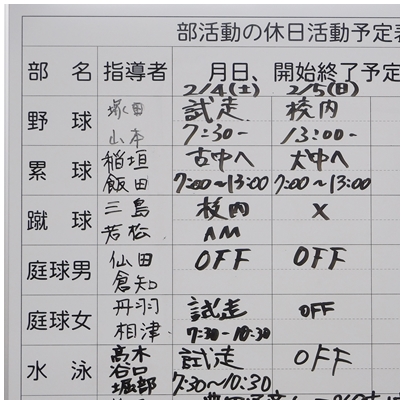 部活動の休日活動予定表
部 名 指導者 月日、開始終了予定
2/4(土) 2/5(日)
野 球 塚田 試走 校内
山本 7:30- 13:00-
累 球 稲垣 古中へ 犬中へ
飯田 7:00~13:00 7:00~13:00
蹴 球 三島 校内 ×
若松 AM
庭球男 仙田 OFF OFF
倉知
庭球女 丹羽 試走 OFF
相津 7:30-10:30
水 泳 高木 試走 OFF
谷口
堀部 7:30~10:30